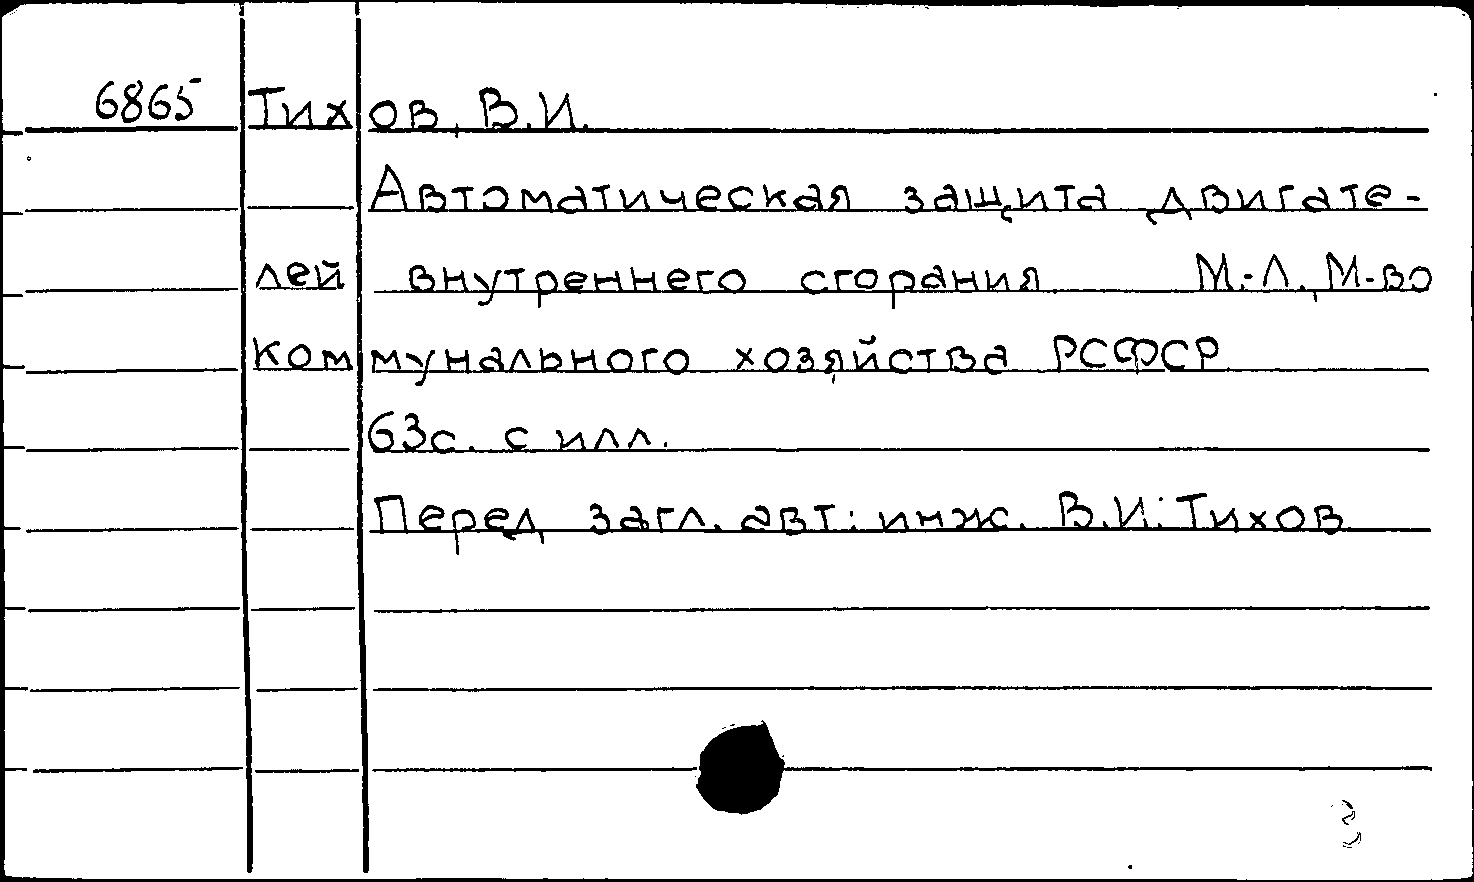 6865 Тихов, В.И.
Автоматическая защита двигате-
лей внутреннего сгорания М.-Л., М-во
коммунального хозяйства РСФСР
63с. с илл.
Перед загл. авт: инж. В.И. Тихов